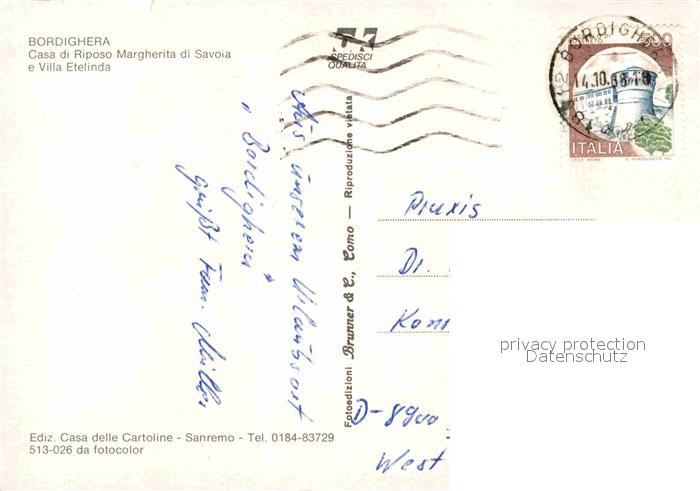 BORDIGHERA
Casa di Riposo Margherita di Savoia
e Villa Etelinda
SPEDISCI
QUALITÀ
BORDIGHERA
14.10.88
ITALIA
Aus unserem Urlaubsort
"Bordighera"
grüßt Fam. Müller
Fotoedizioni Brunner & C., Como — Riproduzione vietata
Praxis
Dr.
D-8900
West
privacy protection
Datenschutz
Ediz. Casa delle Cartoline - Sanremo - Tel. 0184-83729
513-026 da fotocolor